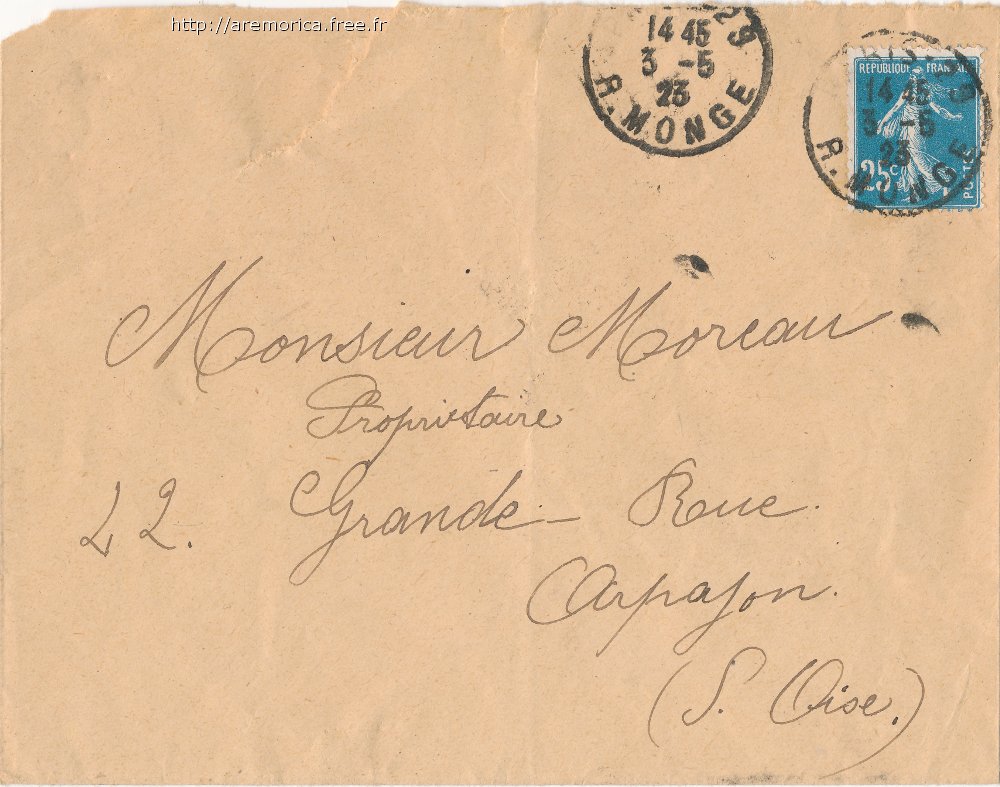 http://aremorica.free.fr
29
14 45
3 -5
23
R. MONGE
REPUBLIQUE FRANÇAISE
IS 29
14 45
3 -5
23
R. MONGE
25c
POSTES
Monsieur Moreau
Propriétaire
22. Grande-Rue.
Arpajon.
(S. Oise.)